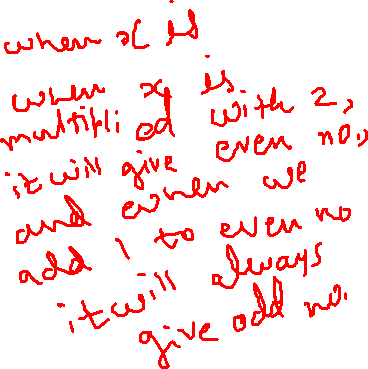 when x is
when x is
multipli ed with 2,
it will give even no.,
and when we
add 1 to even no
it will always
give odd no.